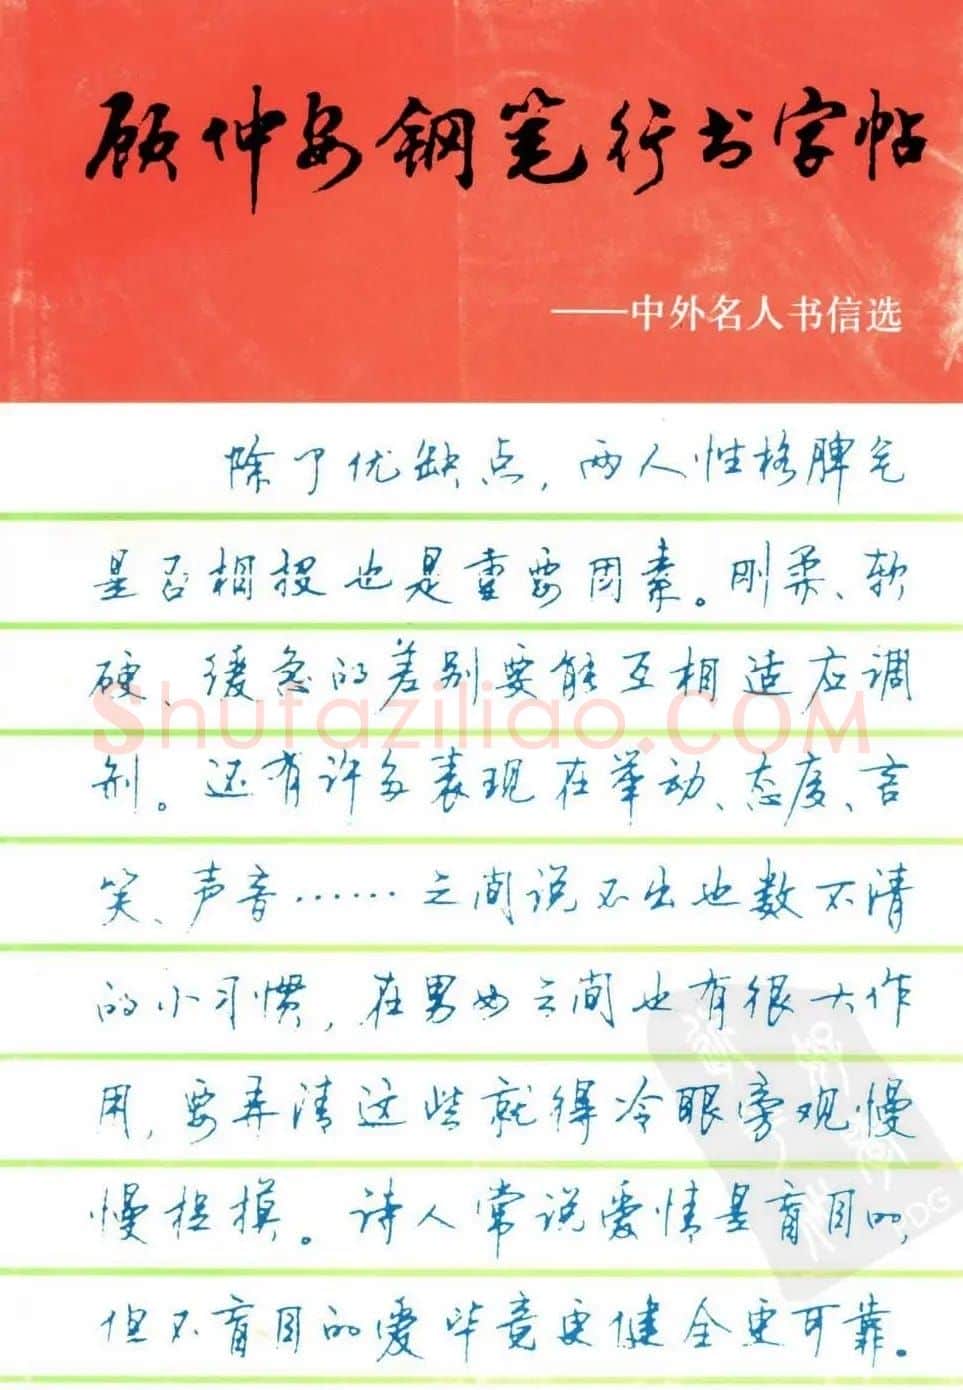 顾仲安钢笔行书字帖
——中外名人书信选
除了优缺点，两人性格脾气
是否相投也是重要因素。刚柔、软
硬、缓急的差别要能互相适应调
剂。还有许多表现在举动、态度、言
笑、声音……之间说不出也数不清
的小习惯，在男女之间也有很大作
用，要弄清这些就得冷眼旁观慢
慢捉摸。诗人常说爱情是盲目的，
但不盲目的爱毕竟更健全更可靠。
Shufaziliao.COM
PDG